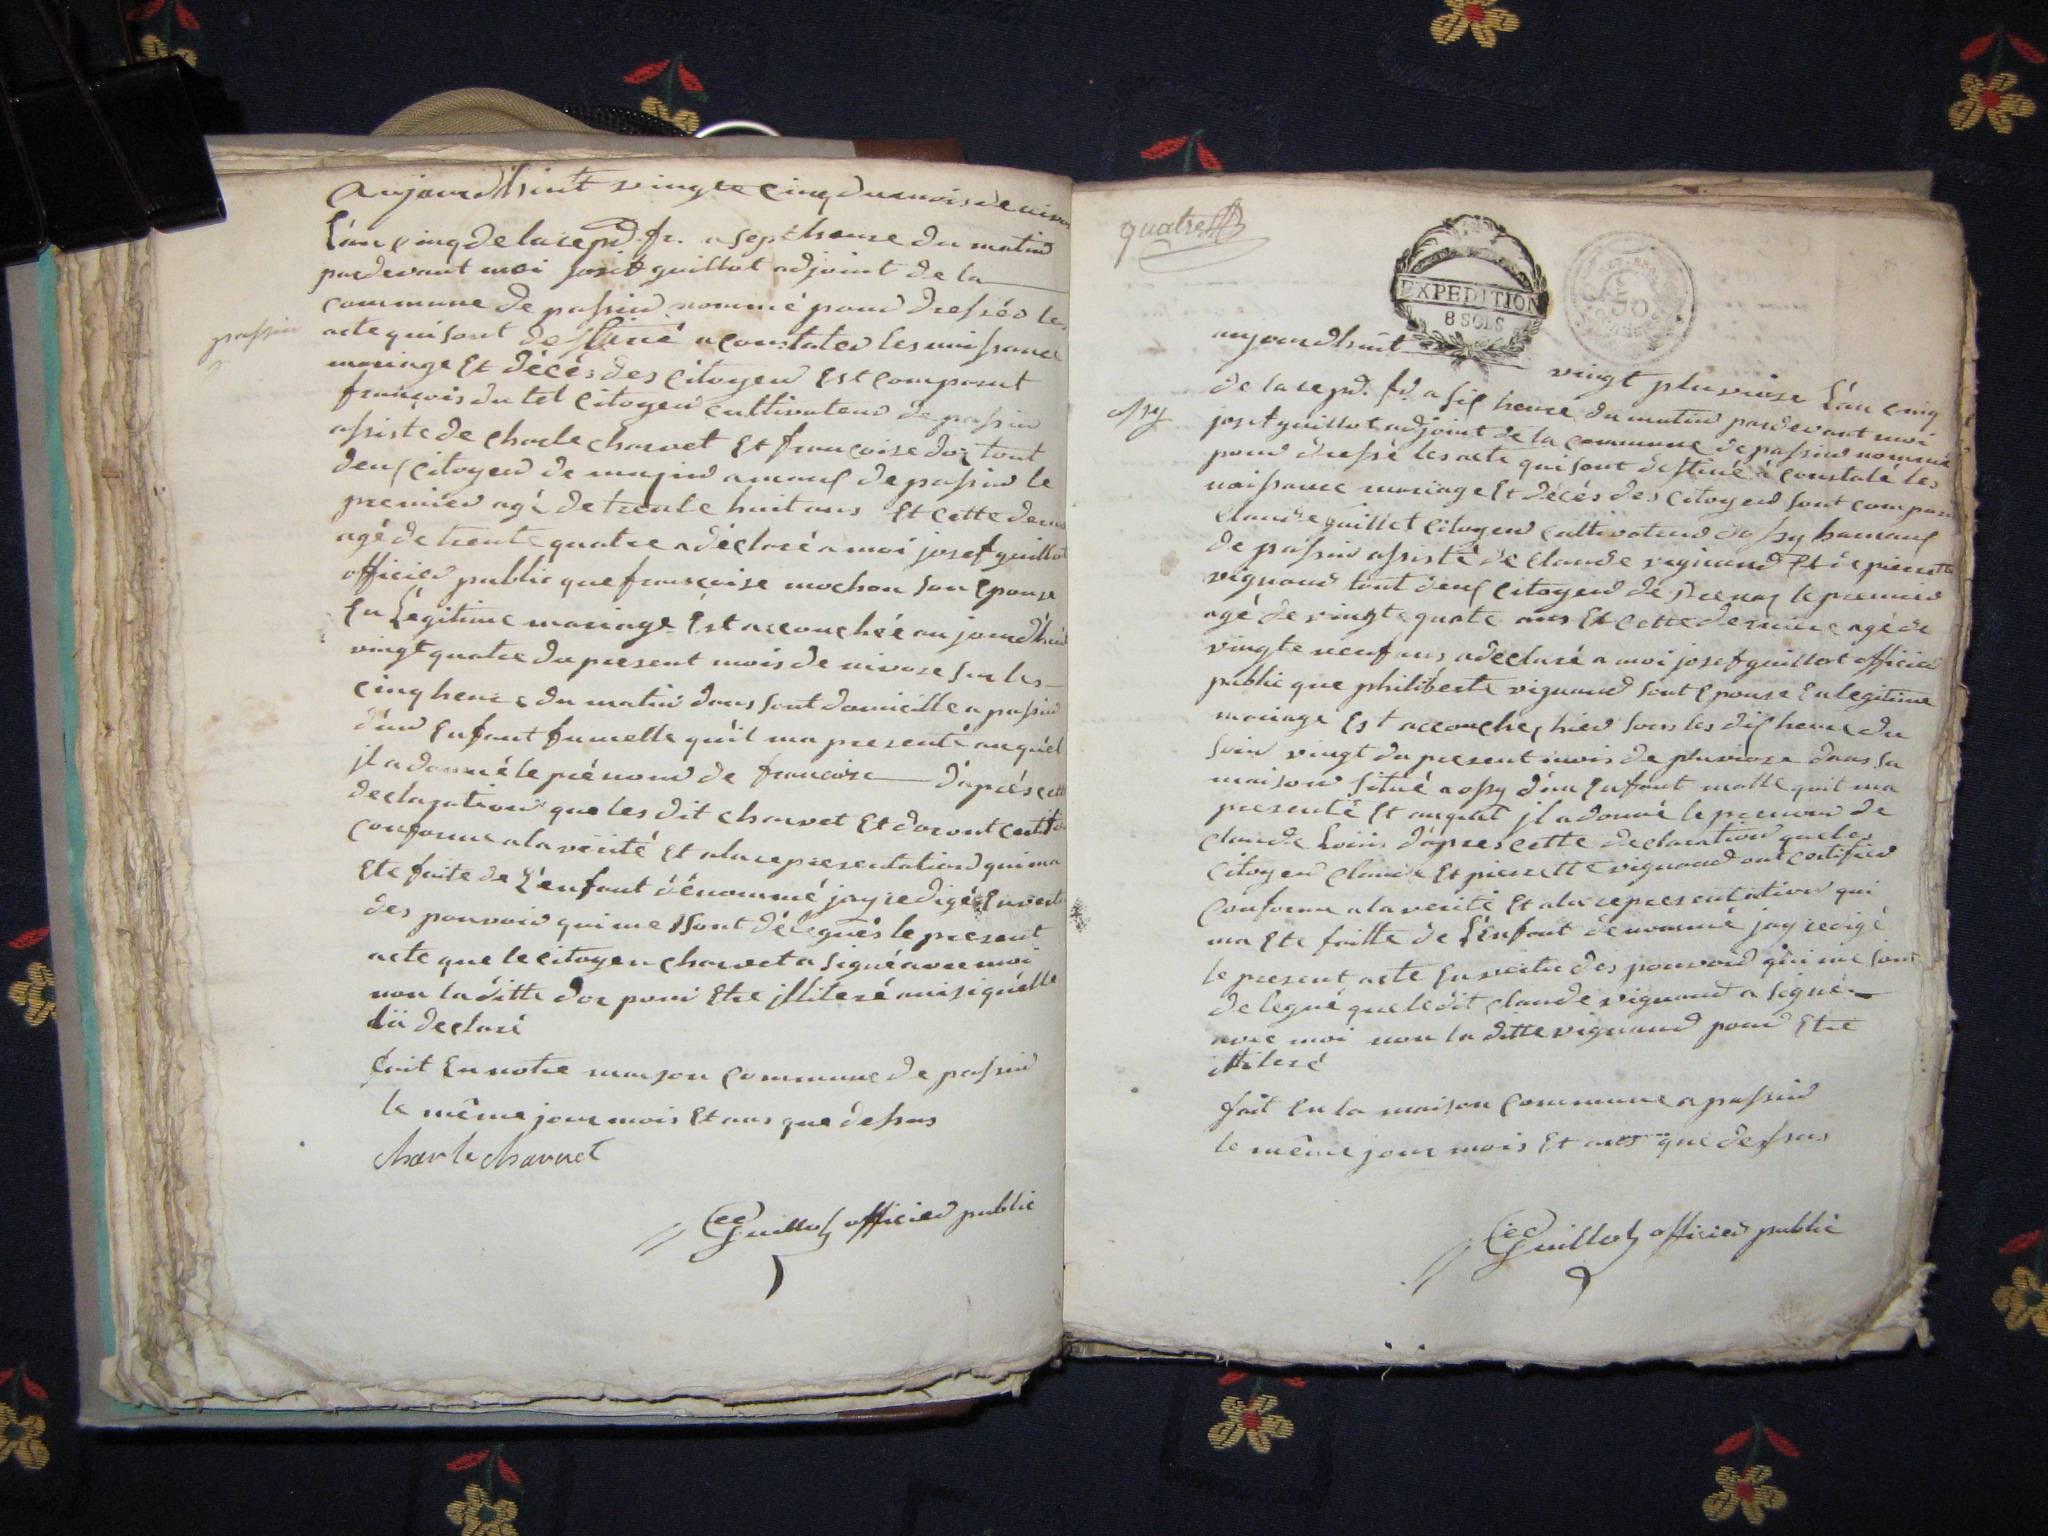 aujourdhuit vingte cinq du mois de nivos
L'an cinq de la repd. fr. a sept heure du matin
pardevant moi josef guillot adjoint de la
commune de passin nommé pour dressés les
acte qui sont destiné a constater les naissance
passin
mariage Et décés des citoyen Est comparut
françois dutel citoyen cultivateur de passin
assiste de charle charvet Et françoise doz tout
deux citoyen de amaux de passin le
premier agé de trente huit ans Et cette derni
agé de trente quatre a déclaré a moi josef guillot
officier public que françoise mochon son Epouse
En Légitime mariage Est accouchée aujourdhui
vingt quatre du present mois de nivose sur les
cinq heure du matin dans sont domicille a passin
d'un Enfant fumelle qu'il ma presenté auquel
jl a donné le prénom de francoise d'aprés cette
declaration que les dit charvet Et doz ont certif
conforme a la vérité Et a la representation qui ma
Ete faite de L'enfant dénommé jay redigé En vertu
des pouvoir qui me sont délegués le present
acte que le citoyen charvet a signé avec moi
non la ditte doz pour Etre jlliteré ainsi quelle
la declaré
fait En notre maison commune de passin
le même jour mois Et ans que dessus
charle charvet
Guillot officier public
quatre
EXPEDITION
8 SOLS
50
aujourdhuit vingt pluviose L'an cinq
de la repd. fr. a six heure du matin pardevant moi
ossy
josef guillot adjoint de la commune de passin nommé
pour dressé les acte qui sont destiné à constaté les
naissance mariage Et décés des citoyen sont comparu
claude guillet citoyen cultivateur dossy hamaux
de passin assisté de claude vignaud Et de pierrette
vignaud tout deux citoyen de le premier
agé de vingte quatre ans Et cette derniere agé de
vingte neuf ans a declaré a moi josef guillot officier
public que philiberte vignaud sont Epouse En legitime
mariage Est accouchez hier sur les dix heure du
soir vingt du present mois de pluviose dans sa
maison situé a ossy d'un Enfant malle quil ma
presenté Et auquel jl a donné le prenom de
claude Louis d'apres cette declaration que les
citoyen claude Et pierrette vignaud ont certifier
conforme a la verité Et a la representation qui
ma Ete faitte de L'enfant dénommé jay redigé
le present acte En vertu des pouvoir qui me sont
delegué que le dit claude vignaud a signé
avec moi non la ditte vignaud pour Etre
illiteré
fait En la maison commune a passin
le même jour mois Et ans que dessus
Guillot officier public